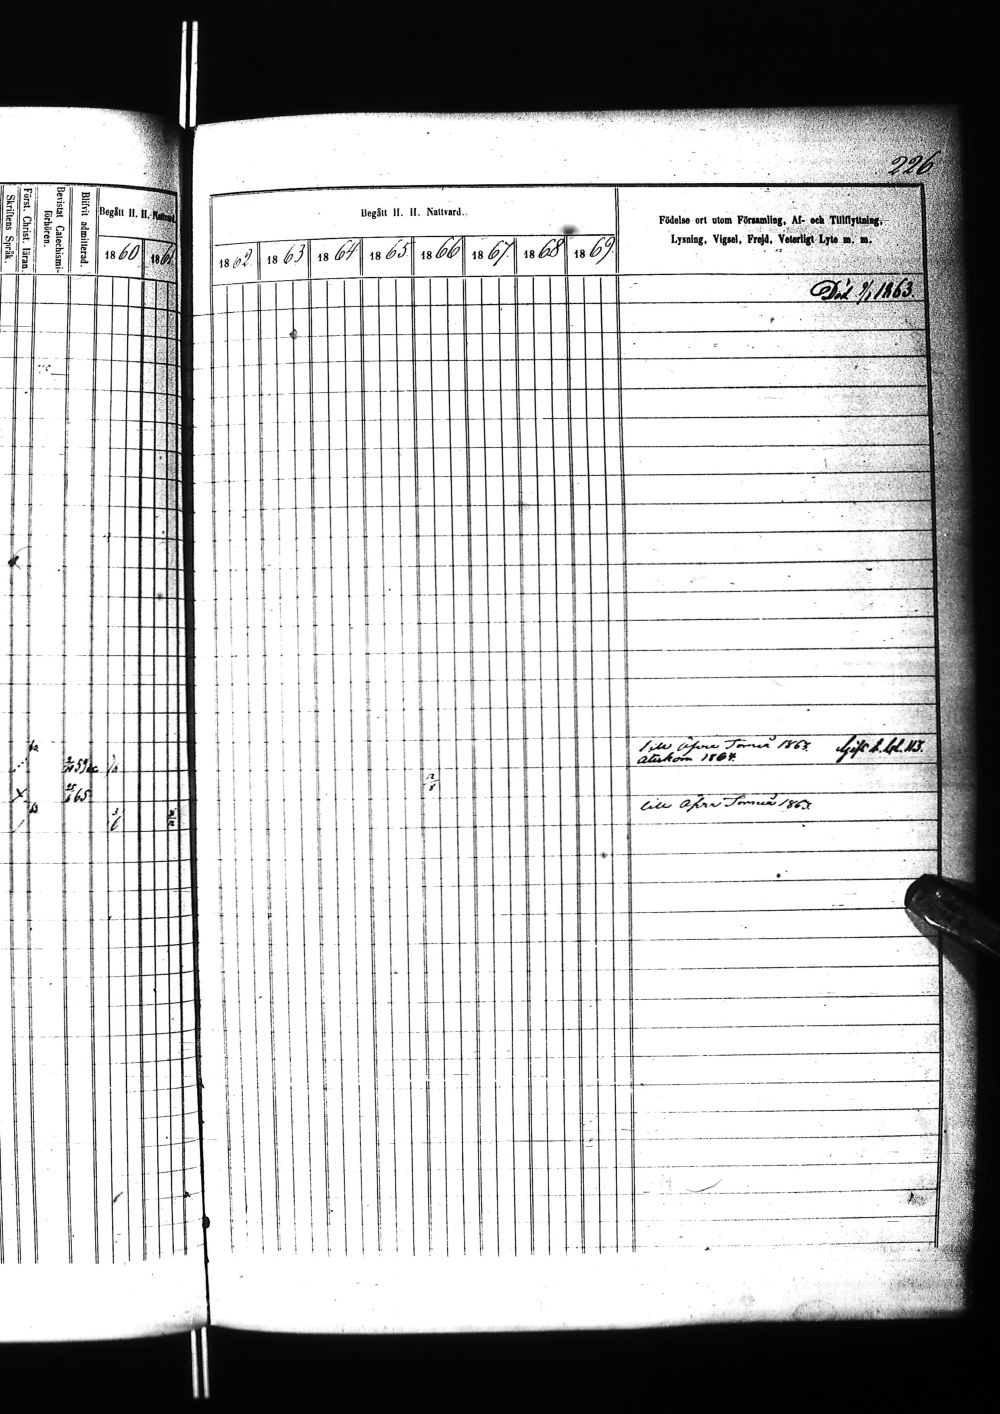 226
Skriftens Språk.
Först. Christ. läran.
Bevistat Catechismi-
förhören.
Blifvit admitterad.
Begått H. H. Nattvard.
1860
1861
Begått H. H. Nattvard.
1862 1863 1864 1865 1866 1867 1868 1869
Födelse ort utom Församling, Af- och Tillflyttning,
Lysning, Vigsel, Frejd, Veterligt Lyte m. m.
Död 9/1 1863.
till Öfver Torneå 1863.
återkom 1864.
12/8
65
till Öfver Torneå 1863.
3/6